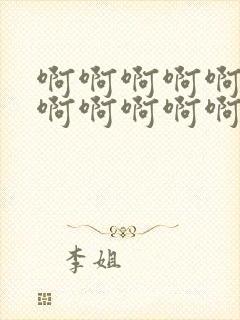 啊啊啊啊啊
啊啊啊啊啊
李姐